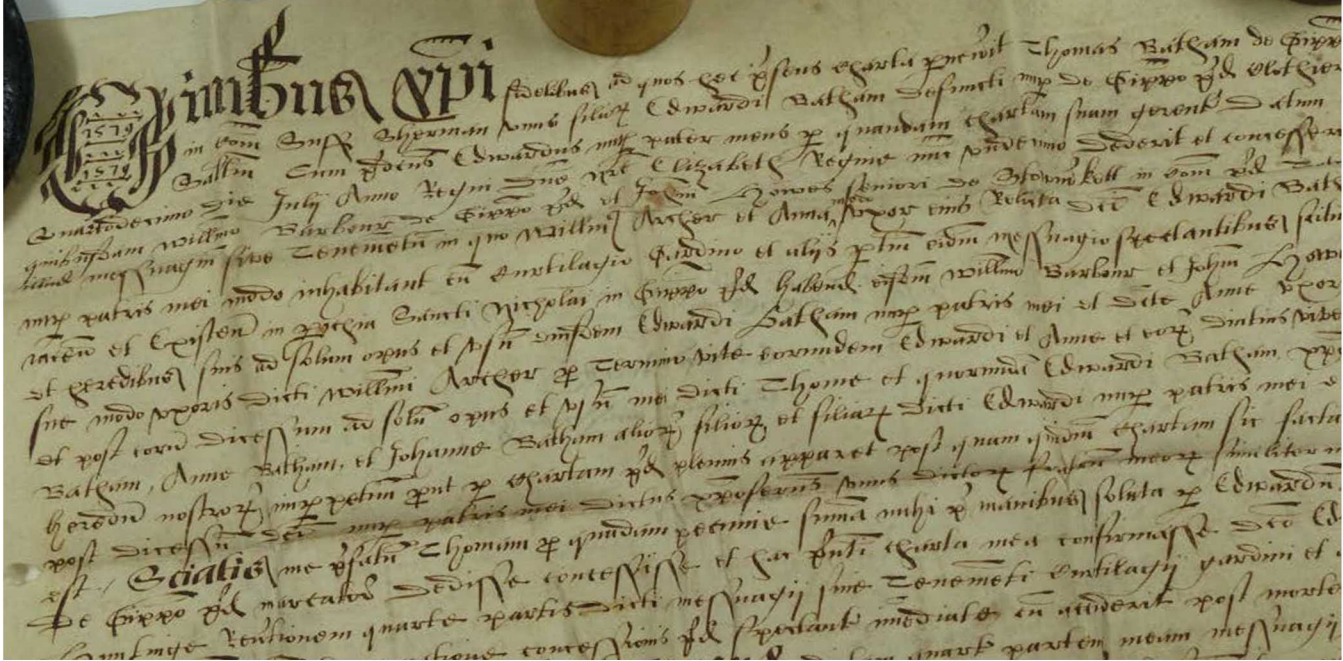 Omnibus xpi fidelibus ad quos hec prsens Charta pervenit Thomas Batham de Gippo
1579
1579
in Com Suff Sherman unus filior Edwardi Batham defuncti nup de Gippo prd Clothier
Saltm Cum prdcus Edwardus nup pater meus p quandam Chartam suam gerent Datum
Quartodecimo die Julij Anno Regni Dne nre Elizabeth Regine nui undecimo Dederit et concesser
quibusdam Willmo Barbour de Gippo prd et Johni Howes seniori de Stowmkett in Com prd
illud messuagiu sive Tenementu in quo Willms Archer et Anna modo uxor eius Relicta dci Edwardi Bath
nup patris mei modo inhabitant cu Curtilagio Gardino et alijs ptin eidm messuagio spectantibus scitu
iacen et Existen in prochia Sancti Nicholai in Gippo prd habend eisdem Willmo Barbour et Johni How
et heredibus suis ad solum opus et usu eiusdem Edwardi Batham nup patris mei et Dicte Anne uxor
sue modo uxoris dicti Willmi Archer p Termino vite eorundem Edwardi et Anne et eor diutius vive
et post eoru dicessum ad solu opus et usu mei dicti Thome et quorundam Edwardi Batham
Batham, Anne Batham, et Johanne Batham alior filior et filiar dicti Edwardi nup patris mei
heredu nostror imppetuu put p Chartam prd plenius apparet post quam quidm Chartam sic facta
post dicessu dci nup patris mei dictus unus dictor fratru meor similiter
est, Sciatis me prfatu Thomam p quadam pecunie suma mihi p manibus soluta p Edwardu
De Gippo prd marcator Dedisse concessisse et hac prnti Charta mea confirmasse Dco Ed
Reversionem quarte partis dicti messuagij sive Tenementi Curtilagij gardini et
concessionis prd spectant imediate cu acciderit post morte
quart partem meam messuagij